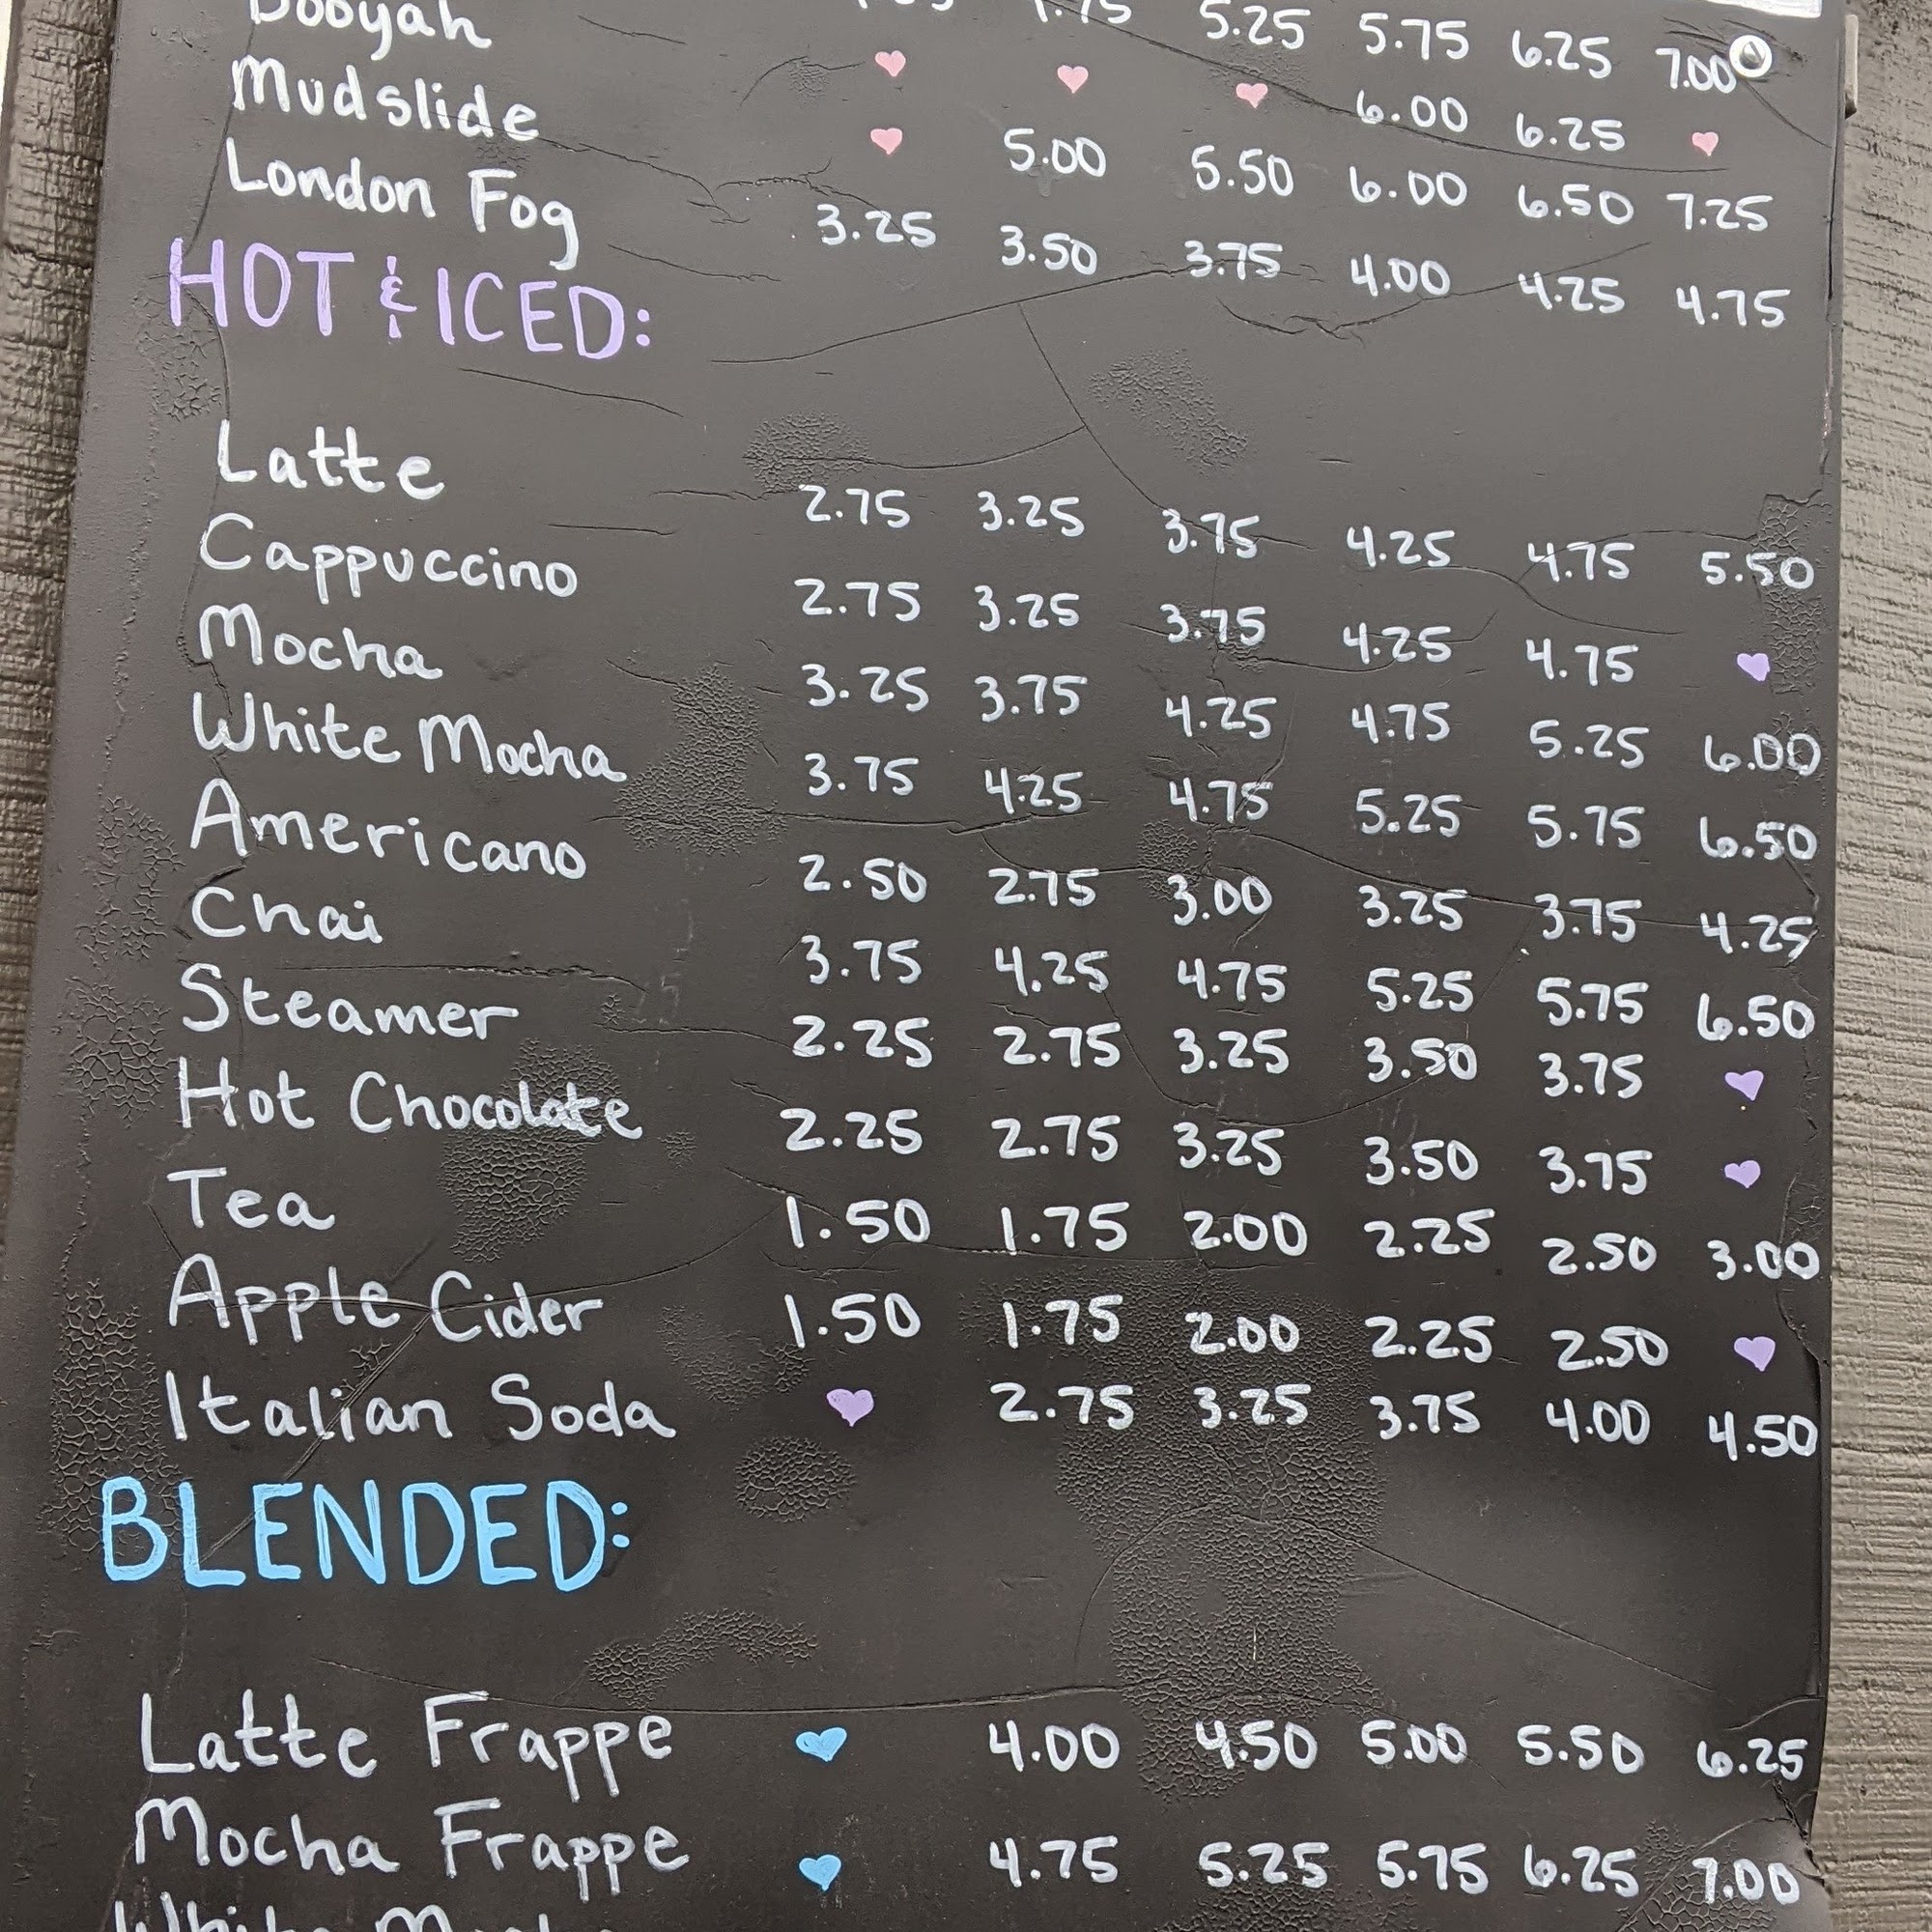 5.25 5.75 6.25 7.00
Booyah 6.00 6.25
Mudslide 5.00 5.50 6.00 6.50 7.25
London Fog 3.25 3.50 3.75 4.00 4.25 4.75
HOT & ICED:
Latte 2.75 3.25 3.75 4.25 4.75 5.50
Cappuccino 2.75 3.25 3.75 4.25 4.75
Mocha 3.25 3.75 4.25 4.75 5.25 6.00
White Mocha 3.75 4.25 4.75 5.25 5.75 6.50
Americano 2.50 2.75 3.00 3.25 3.75 4.25
Chai 3.75 4.25 4.75 5.25 5.75 6.50
Steamer 2.25 2.75 3.25 3.50 3.75
Hot Chocolate 2.25 2.75 3.25 3.50 3.75
Tea 1.50 1.75 2.00 2.25 2.50 3.00
Apple Cider 1.50 1.75 2.00 2.25 2.50
Italian Soda 2.75 3.25 3.75 4.00 4.50
BLENDED:
Latte Frappe 4.00 4.50 5.00 5.50 6.25
Mocha Frappe 4.75 5.25 5.75 6.25 7.00
White Mocha